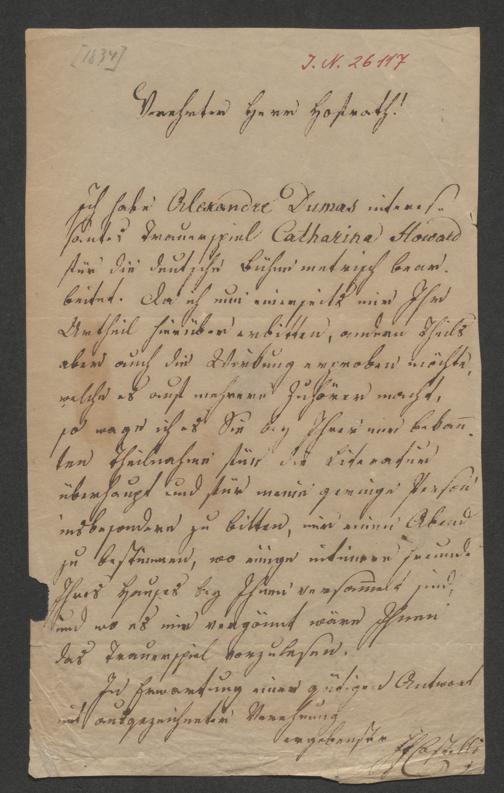 [1834]
I. N. 26117
Verehrter Herr Hofrath!
Ich habe Alexandre Dumas interes-
santes Trauerspiel Catharina Howard
für die deutsche Bühne metrisch bear-
beitet. Da ich nun einerseits mir Ihr
Urtheil hierüber erbitten, andern Theils
aber auch die Wirkung erproben möchte,
welche es auf mehrere Zuhörer macht,
so wage ich es Sie bey Ihrer mir bekann-
ten Theilnahme für die Literatur
überhaupt und für meine geringe Person
insbesondere zu bitten, mir einen Abend
zu bestimmen, wo einige intimere Freunde
Ihres Hauses bey Ihnen versammelt sind,
und wo es mir vergönnt wäre Ihnen
das Trauerspiel vorzulesen.
In Erwartung einer gütigen Antwort
mit ausgezeichneter Verehrung
ergebenster Castelli